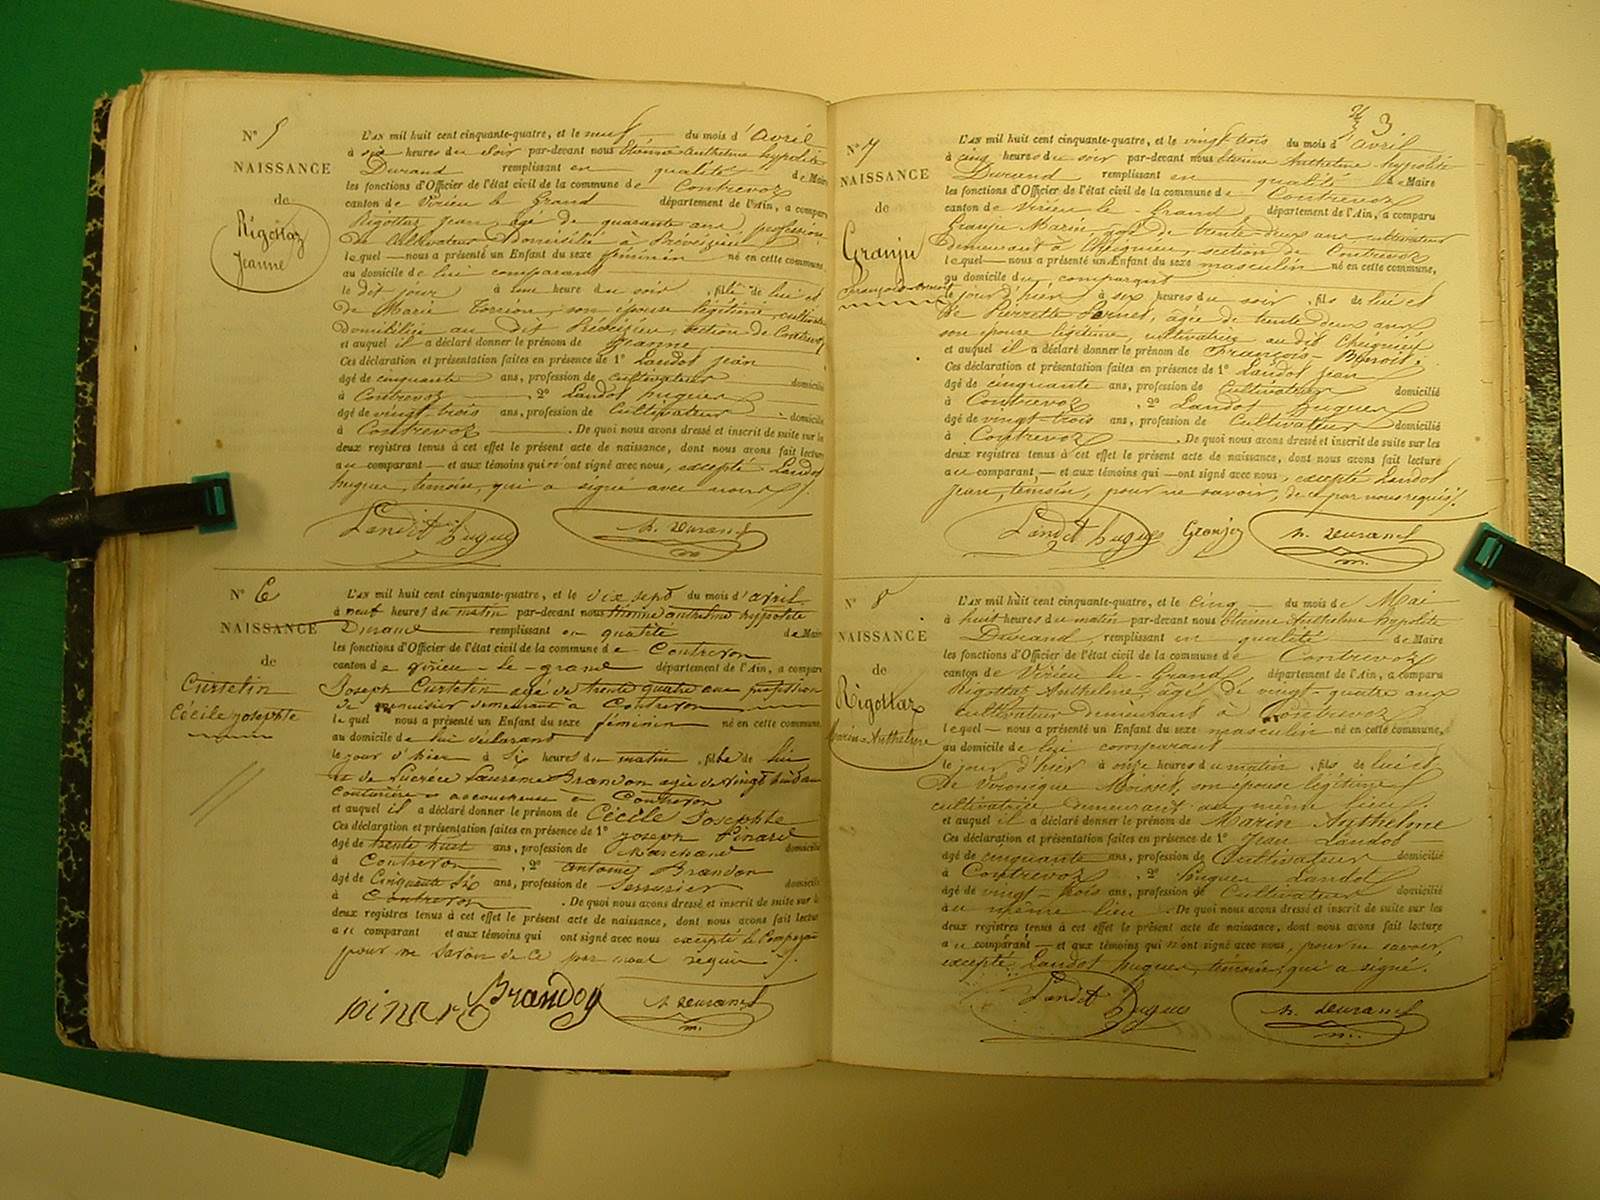 N° 5
NAISSANCE
de
Rigottaz
Jeanne
L'AN mil huit cent cinquante-quatre, et le neuf du mois d'avril
à six heures du soir par-devant nous Etienne Anthelme hypolite
Durand remplissant en qualité de Maire
les fonctions d'Officier de l'état civil de la commune de Contrevoz
canton de Virieu le Grand département de l'Ain, a comparu
Rigottaz Jean, âgé de quarante ans, profession
de Cultivateur, Domicilié à Prévezieu
lequel nous a présenté un Enfant du sexe féminin né en cette commune,
au domicile de lui comparant
le dit jour à une heure du soir, fille de lui et
de Marie Torrion, son épouse légitime, cultivatrice
domiciliée au dit Prévezieu, section de Contrevoz
et auquel il a déclaré donner le prénom de Jeanne
Ces déclaration et présentation faites en présence de 1° Landot Jean
âgé de cinquante ans, profession de cultivateur domicilié
à Contrevoz 2° Landot hugues
âgé de vingt trois ans, profession de Cultivateur domicilié
à Contrevoz. De quoi nous avons dressé et inscrit de suite sur les
deux registres tenus à cet effet le présent acte de naissance, dont nous avons fait lecture
au comparant et aux témoins qui n'ont signé avec nous, excepté Landot
hugues, témoin, qui a signé avec nous.
Landot hugues h. Durand
N° 6
NAISSANCE
de
Curtelin
Cécile josephte
L'AN mil huit cent cinquante-quatre, et le dix sept du mois d'avril
à neuf heures du matin par-devant nous Etienne anthelme hyppolite
Durand remplissant en qualité de Maire
les fonctions d'Officier de l'état civil de la commune de Contrevoz
canton de virieu-le-grand département de l'Ain, a comparu
Joseph Curtelin agé de trente quatre ans profession
de menuisier demeurant à Contrevoz
lequel nous a présenté un Enfant du sexe féminin né en cette commune,
au domicile de lui déclarant
le jour d'hier à six heures du matin, fille de lui
et de Lucrèce Laurence Brandon agée de vingt huit ans
Couturière accoucheuse à Contrevoz
et auquel il a déclaré donner le prénom de Cécile Josephte
Ces déclaration et présentation faites en présence de 1° joseph Pinard
âgé de trente huit ans, profession de Marchand domicilié
à Contrevoz 2° antoine Brandon
âgé de Cinquante six ans, profession de Serrurier domicilié
à Contrevoz. De quoi nous avons dressé et inscrit de suite sur les
deux registres tenus à cet effet le présent acte de naissance, dont nous avons fait lecture
au comparant et aux témoins qui ont signé avec nous excepté le Comparant
pour ne savoir de ce par nous requis.
pinard Brandon h. Durand
3
N° 7
NAISSANCE
de
Granju
François-Benoit
L'AN mil huit cent cinquante-quatre, et le vingt trois du mois d'avril
à cinq heures du soir par-devant nous Etienne Anthelme hypolite
Durand remplissant en qualité de Maire
les fonctions d'Officier de l'état civil de la commune de Contrevoz
canton de Virieu-le-Grand département de l'Ain, a comparu
Granju Marin, âgé de trente-deux ans, cultivateur
demeurant à Cheignieu, section de Contrevoz
lequel nous a présenté un Enfant du sexe masculin né en cette commune,
au domicile du comparant
le jour d'hier à six heures du soir, fils de lui et
de Pierrette, âgée de trente deux ans
son épouse légitime, cultivatrice au dit Cheignieu
et auquel il a déclaré donner le prénom de François-Benoit.
Ces déclaration et présentation faites en présence de 1° Landot Jean
âgé de cinquante ans, profession de Cultivateur domicilié
à Contrevoz, 2° Landot Hugues
âgé de vingt-trois ans, profession de Cultivateur domicilié
à Contrevoz. De quoi nous avons dressé et inscrit de suite sur les
deux registres tenus à cet effet le présent acte de naissance, dont nous avons fait lecture
au comparant, et aux témoins qui ont signé avec nous, excepté Landot
Jean, témoin, pour ne savoir, de ce par nous requis.
Landot hugues Granju h. Durand
N° 8
NAISSANCE
de
Rigottaz
Marin Anthelme
L'AN mil huit cent cinquante-quatre, et le cinq du mois de Mai
à huit heures du matin par-devant nous Etienne Anthelme hypolite
Durand, remplissant en qualité de Maire
les fonctions d'Officier de l'état civil de la commune de Contrevoz
canton de Virieu le-Grand département de l'Ain, a comparu
Rigottaz Anthelme, âgé de vingt-quatre ans
cultivateur demeurant à Contrevoz
lequel nous a présenté un Enfant du sexe masculin né en cette commune,
au domicile de lui comparant
le jour d'hier à onze heures du matin, fils de lui et
De Véronique Moisset, son épouse légitime
cultivatrice demeurant au même lieu.
et auquel il a déclaré donner le prénom de Marin Anthelme
Ces déclaration et présentation faites en présence de 1° Jean Landot
âgé de cinquante ans, profession de Cultivateur domicilié
à Contrevoz 2° hugues Landot
âgé de vingt-trois ans, profession de Cultivateur domicilié
au même lieu. De quoi nous avons dressé et inscrit de suite sur les
deux registres tenus à cet effet le présent acte de naissance, dont nous avons fait lecture
au comparant et aux témoins qui n'ont signé avec nous, pour ne savoir
excepté Landot hugues, témoin, qui a signé.
Landot hugues h. Durand